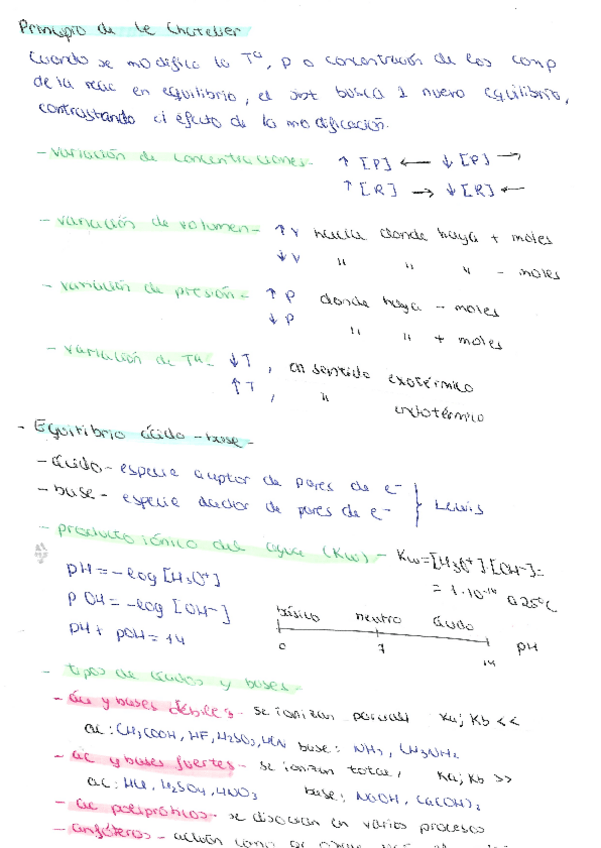 Principio de le Chatelier
Cuando se modifica la Tª, p o concentración de los comp
de la reac en equilibrio, el sist busca 1 nuevo equilibrio,
contrastando el efecto de la modificación.
- variación de concentraciones- ↑ [P] ← ↓ [P] →
↑ [R] → ↓ [R] ←
- variación de volumen- ↑ V hacia donde haya + moles
↓ V " " " - moles
- variación de presión- ↑ P donde haya - moles
↓ P " " + moles
- variación de Tª- ↓ T, en sentido exotérmico
↑ T, " endotérmico
- Equilibrio ácido-base-
- ácido- especie aceptor de pares de e-
- base- especie dador de pares de e- } Lewis
- producto iónico del agua (Kw) - Kw=[H3O+]·[OH-]=
= 1·10-14 a 25ºC
pH = -log [H3O+]
pOH = -log [OH-]
pH + pOH = 14
básico neutro ácido
0 7 14 pH
- tipos de ácidos y bases-
- ác y bases débiles- se ionizan parcial Ka; Kb <<
ac: CH3COOH, HF, H2SO3, HCN base: NH3, CH3NH2
- ac y bases fuertes- se ionizan total, Ka; Kb >>
ac: HCl, H2SO4, HNO3 base: NaOH, Ca(OH)2
- ac polipróticos- se disocian en varios procesos
- anfóteros- actúan como